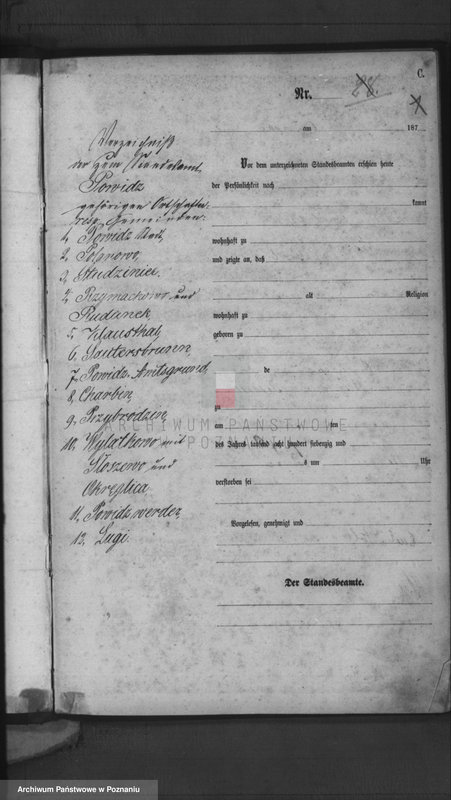 C.
Nr. 28.
am 187
Verzeichniß
der zum Standesamt
Powidz
gehörigen Ortschaften
resp. Gemeinden:
1. Powidz Stadt,
2. Polanowo,
3. Studziniec,
4. Przymachowo und
Rudunek,
5. Klausthal,
6. Sautersbrunn,
7. Powidz-Amtsgrund,
8. Charbin,
9. Przybrodzin,
10. Wylatkowo mit
Słoszewo und
Okręglica
11. Powidz werder,
12. Lugi.
Vor dem unterzeichneten Standesbeamten erschien heute
der Persönlichkeit nach
kannt
wohnhaft zu
und zeigte an, daß
alt Religion
wohnhaft zu
geboren zu
de
zu
am ten
des Jahres tausend acht hundert siebenzig und
s um Uhr
verstorben sei
Vorgelesen, genehmigt und
Der Standesbeamte.
ARCHIWUM PAŃSTWOWE
POZNAŃ
Archiwum Państwowe w Poznaniu